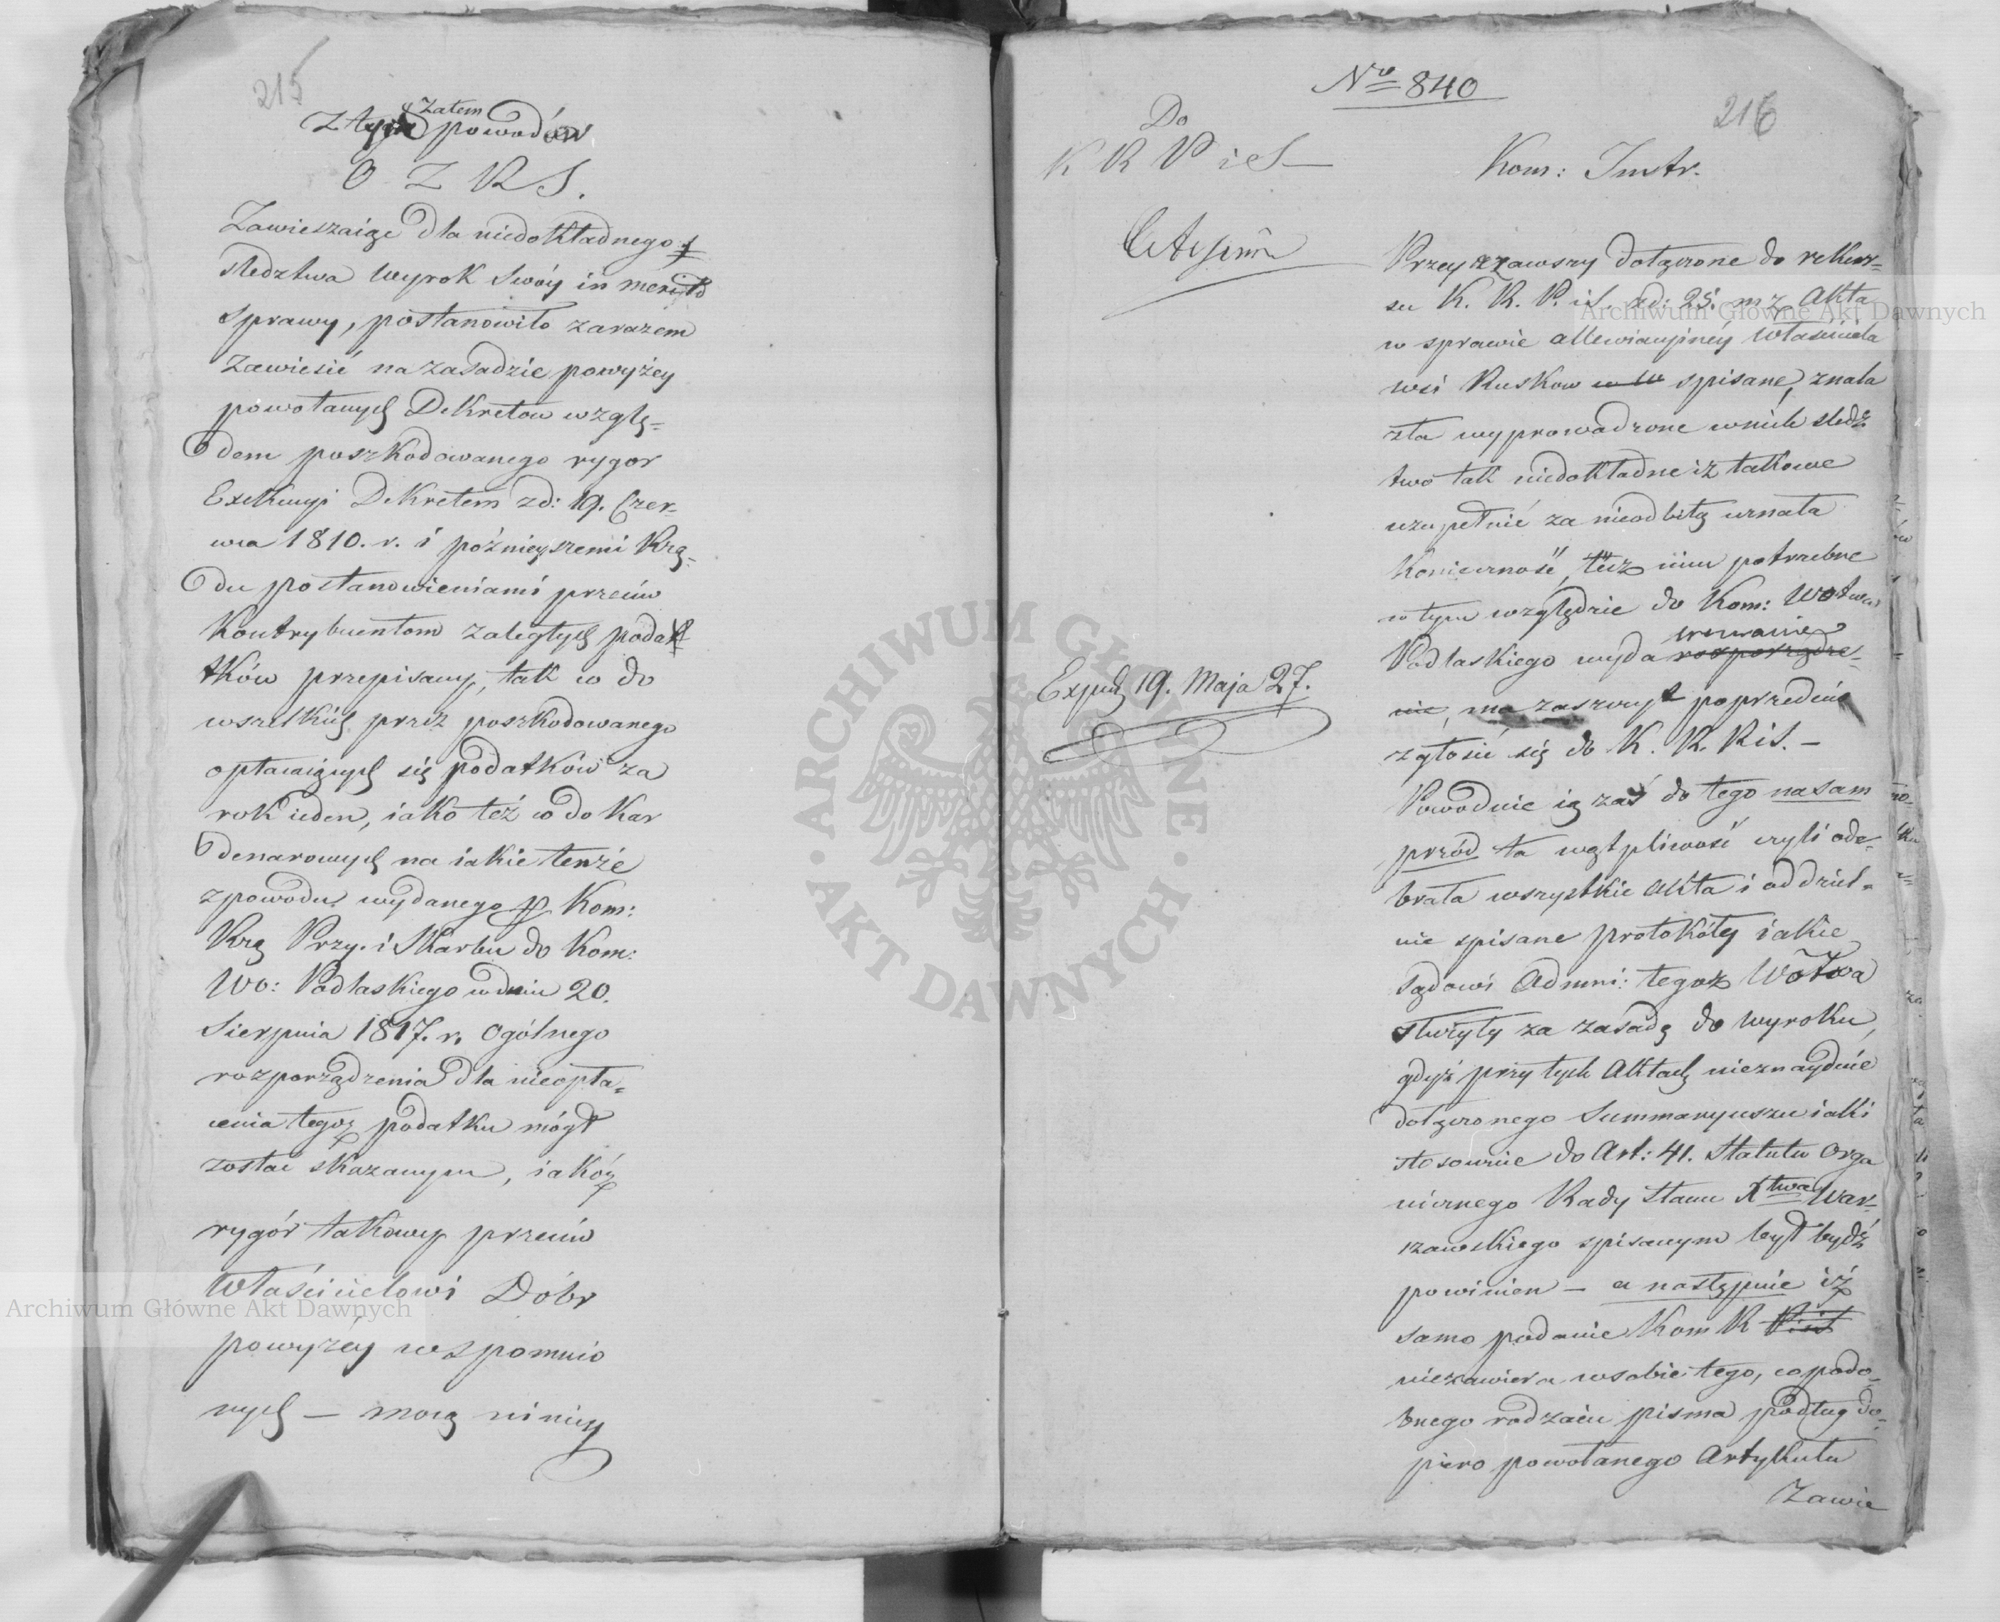 215
zatem
z tych powodów
O Z R S.
Zawieszaiąc dla niedokładnego
śledztwa Wyrok swóy in merito
sprawy, postanowiło zarazem
zawiesić na zasadzie powyżey
powołanych Dekretow wzglę=
dem poszkodowanego rygor
Exekucyi Dekretem z d: 19. Czer=
wca 1810. r. i poźnieyszemi Rzą=
du postanowieniami przeciw
Kontrybuentom zaległych podat
tków przepisany, tak co do
wszelkich przez poszkodowanego
opłacaiących się podatków za
rok ieden, iako też co do kar
denarowych na iakie tenże
z powodu wydanego p Kom:
Rzą Przy. i Skarbu do Kom:
Wo: Podlaskiego w dniu 20.
Sierpnia 1817. r. ogólnego
rozporządzenia dla nieopła=
cenia tegoż podatku mógł
zostać skazanym, iakoż
rygór takowy przeciw
Właścicielowi Dóbr
powyżéy wspomnio
nych — mocą ninieys
Nro 840
216
Do
K R P i S —
Kom: Instr.
Przeyrzawszy dołączone do rekur=
su K. R. P. i S. z d: 25. m z Akta
w sprawie allewiacyinéy Właściciela
wsi Ruskow spisane, znala
zła wyprowadzone w nich śledz
two tak niedokładne iż takowe
uzupełnić za nieodbitą uznała
konieczność, też inu potrzebne
w tym względzie do Kom: Wotwa
wezwanie
Podlaskiego wyda rozporządze=
nie, ma zaszczyt poprzednio
zgłosić się do K. R. P i S. —
Expud 19. Maja 27.
Powoduie ią zaś do tego nasam
przód ta wątpliwość czyli ode=
brała wszystkie Akta i oddziel=
nie spisane protokóły iakie
Sądowi Admni: tegoż Wotwa
służyły za zasadę do wyroku,
gdyż przy tych Aktach nieznayduie
dołączonego Summaryuszu iaki
stosownie do Art: 41. Statutu Orga
nicznego Rady Stanu Xtwa War=
szawskiego spisanym był bydź
powinien — a następnie iż
samo podanie Kom R P i S
niezawiera w sobie tego, co podo=
bnego rodzaiu pisma podług do=
piero powołanego Artykułu
Zawie
Archiwum Główne Akt Dawnych
Archiwum Główne Akt Dawnych
ARCHIWUM GŁÓWNE · AKT DAWNYCH ·